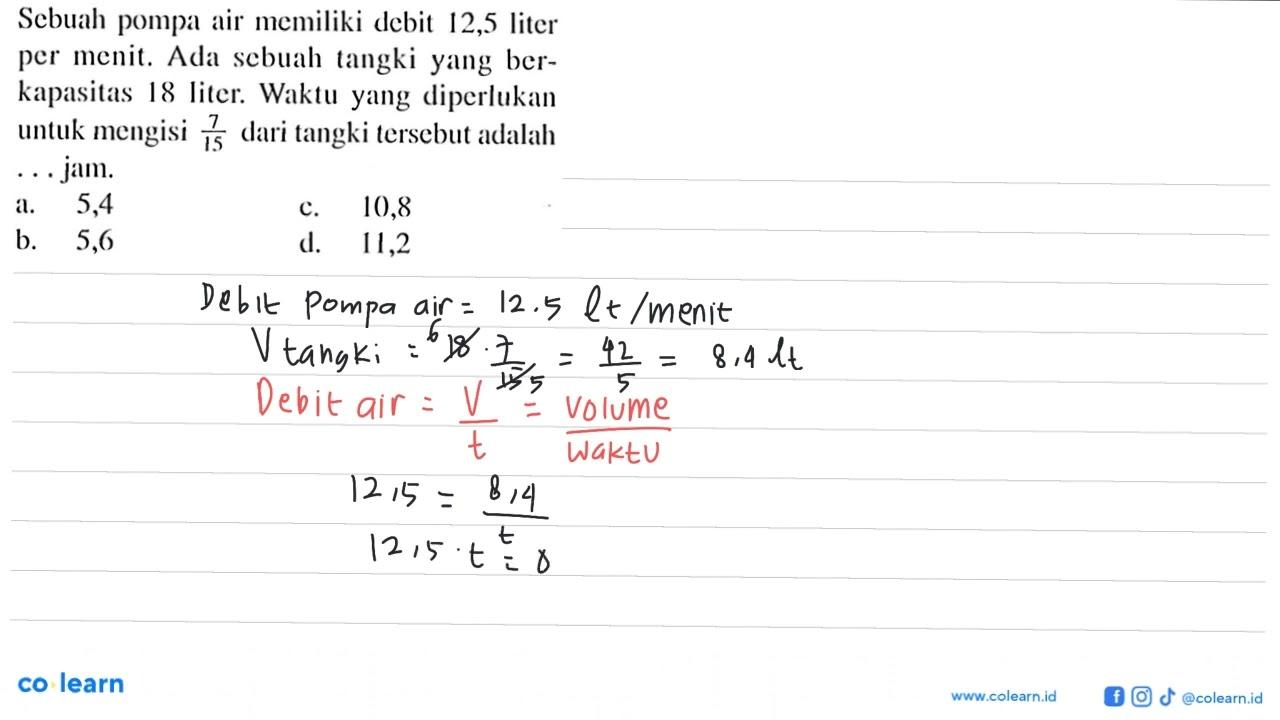 Sebuah pompa air memiliki debit 12,5 liter
per menit. Ada sebuah tangki yang ber-
kapasitas 18 liter. Waktu yang diperlukan
untuk mengisi 7/15 dari tangki tersebut adalah
. . . jam.
a. 5,4 c. 10,8
b. 5,6 d. 11,2
Debit Pompa air = 12.5 lt/menit
V tangki = 6 18 . 7/15 5 = 42/5 = 8,4 lt
Debit air = V/t = Volume/Waktu
12,5 = 8,4/t
12,5 . t = 8
co learn
www.colearn.id @colearn.id